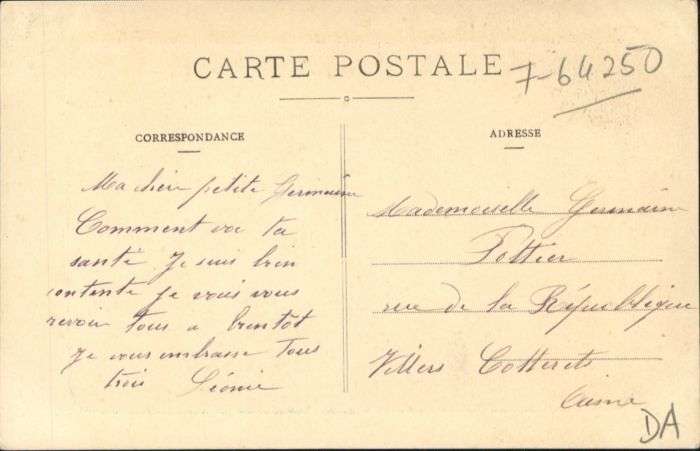 CARTE POSTALE
7-64250
CORRESPONDANCE
Ma chère petite Germaine
Comment va ta
santé Je suis bien
contente je vais vous
revoir tous a bientot
Je vous embrasse tous
trois Léonie
ADRESSE
Mademoiselle Germaine
Pottier
rue de la République
Villers Cotterets
Aisne
DA